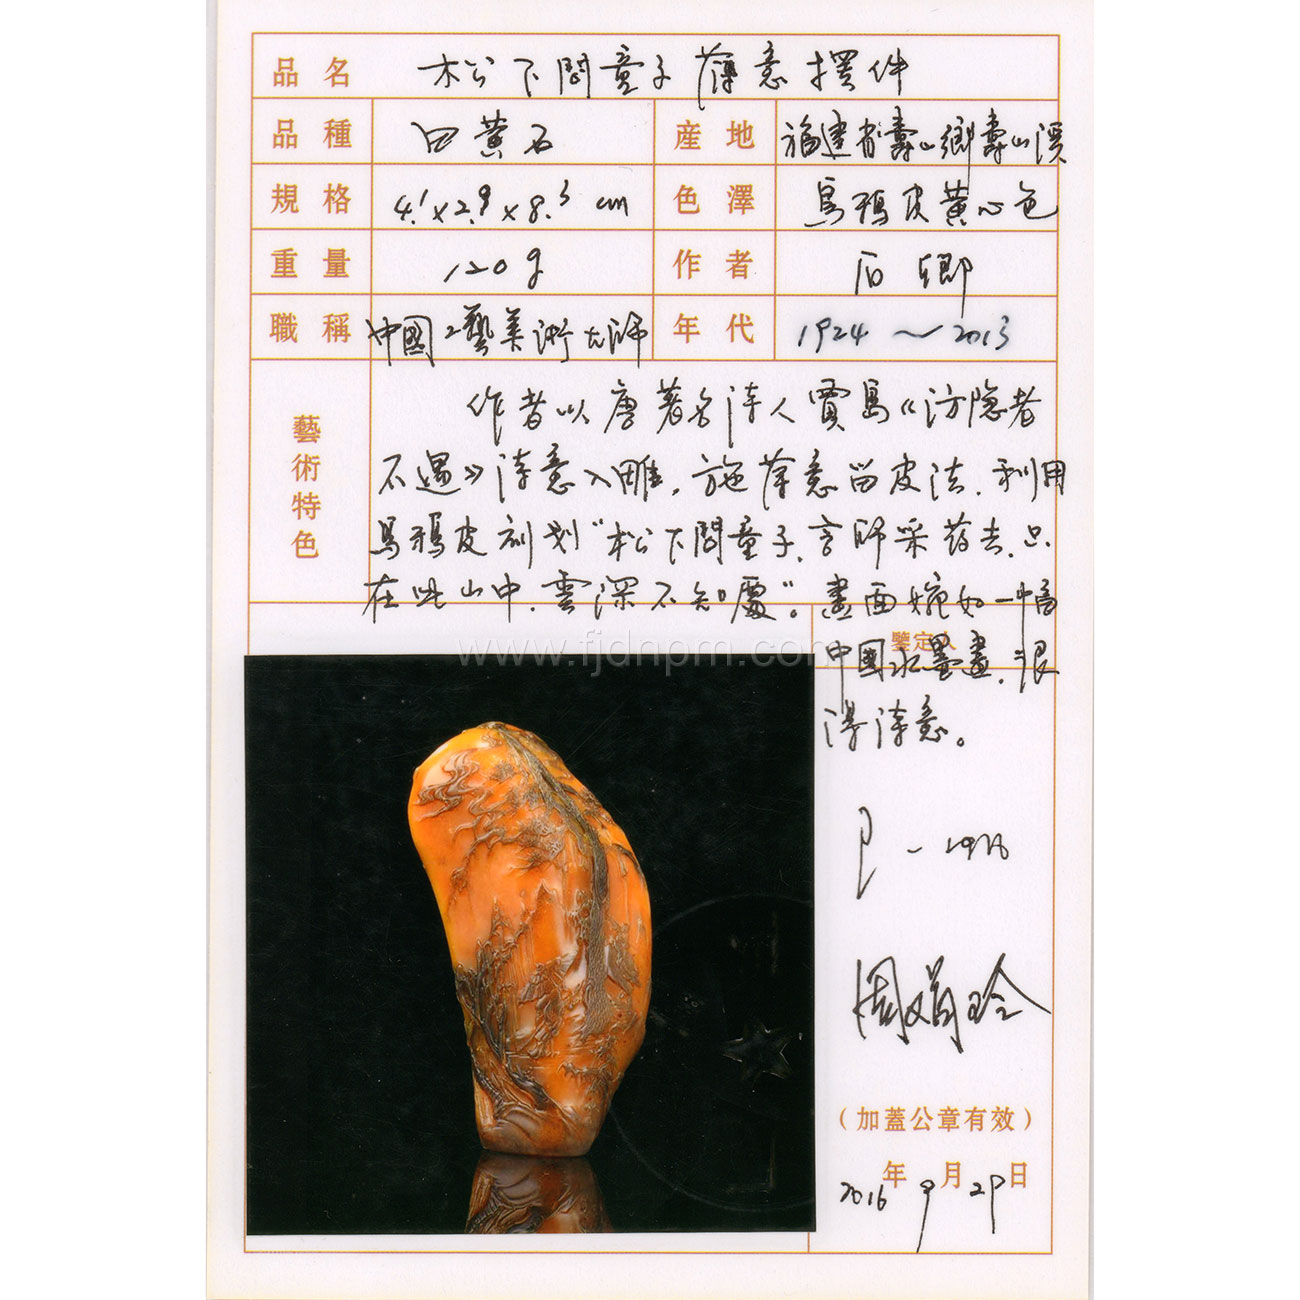 品名 松下問童子薄意摆件
品種 田黄石 産地 福建省壽山鄉壽山溪
規格 4.1x2.9x8.3 cm 色澤 烏鴉皮黄心色
重量 120g 作者 石卿
職稱 中國工藝美術大师 年代 1924～2013
藝術特色
作者以唐著名诗人賈島《访隐者
不遇》诗意入雕，施薄意留皮法，利用
烏鴉皮刻划“松下問童子，言师采药去，只
在此山中，雲深不知處”。畫面婉如一幅
鑒定人
中國水墨畫，很
得诗意。
www.fjdnpm.com
周娟玲
（加蓋公章有效）
2016年9月29日